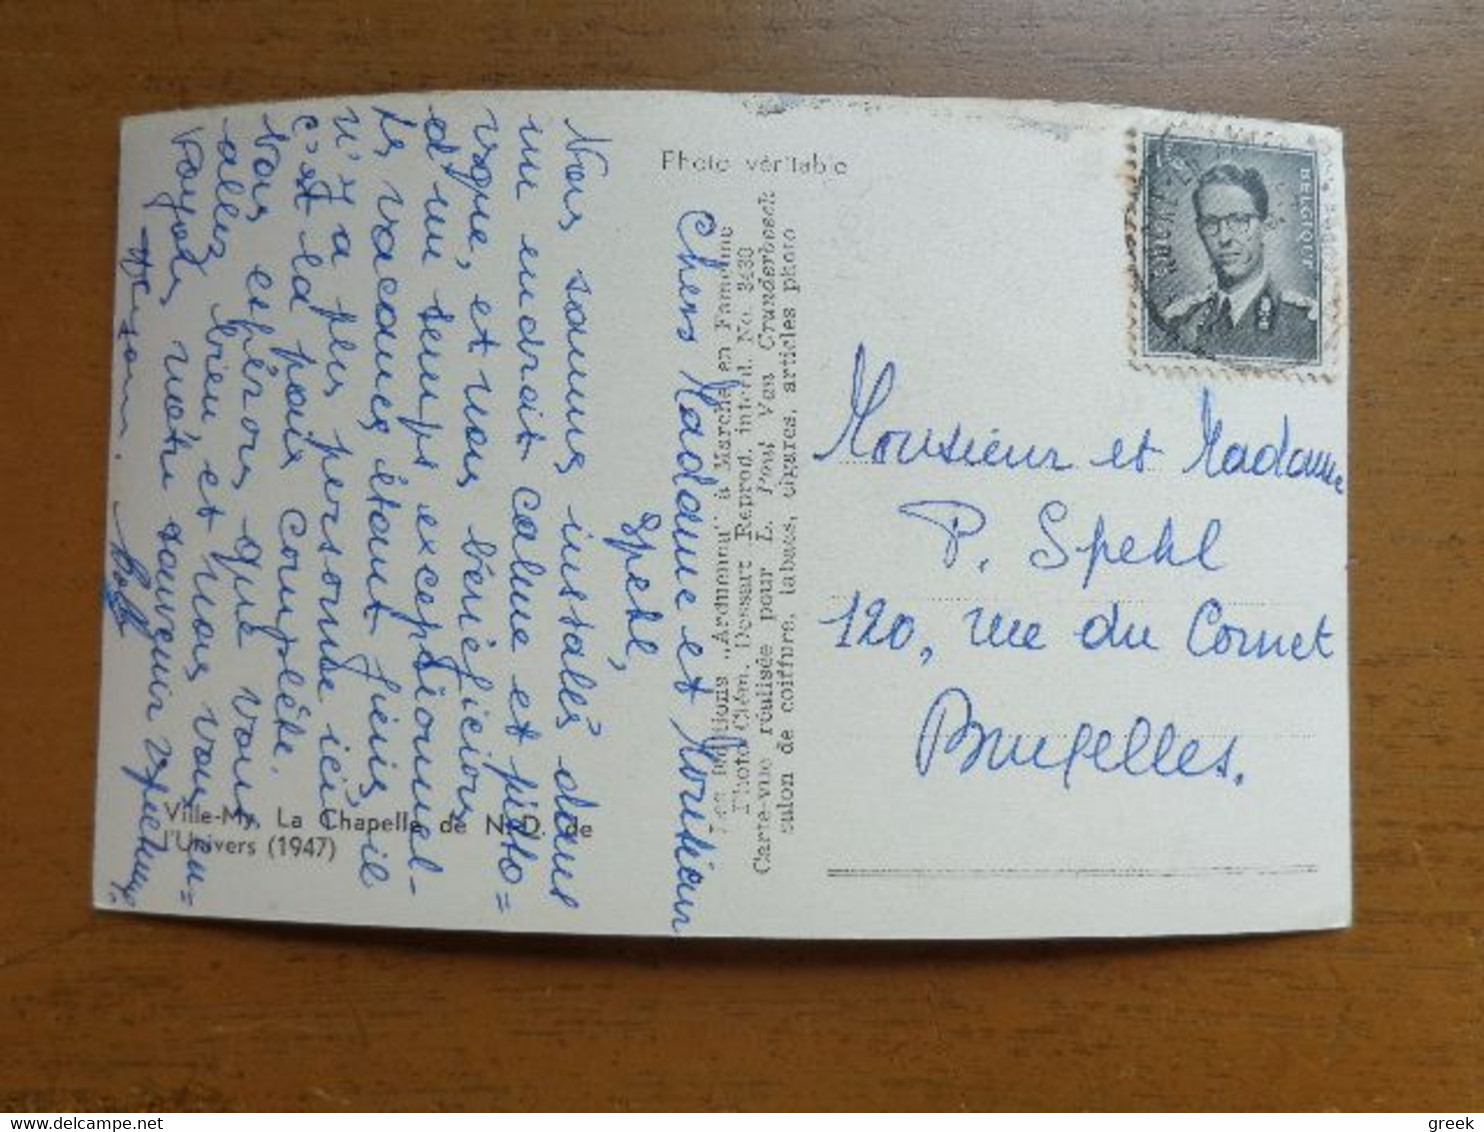 Photo véritable
BELGIQUE
Chers Maddame et Monsieur
Spehl,
Nous sommes installés dans
un endroit calme et pitto=
resque, et nous bénéficions
d'un temps exceptionnel.
Les vacances étant finis, il
n'y a plus personne ici
c'est la paix complète.
Nous espérons que vous
allez bien et nous vous en=
voyons notre souvenir
Les Editions „Ardenna" à Marche en Famenne
Photo Clém. Dessart Reprod. interd. No. 3430
Carte-vue réalisée pour L. Paul Van Crunderbeeck
salon de coiffure, tabacs, cigares, articles photo
Monsieur et Madame
P. Spehl
120, rue du Cornet
Bruxelles.
Ville-My, La Chapelle de N. D. de
l'Univers (1947)
greek